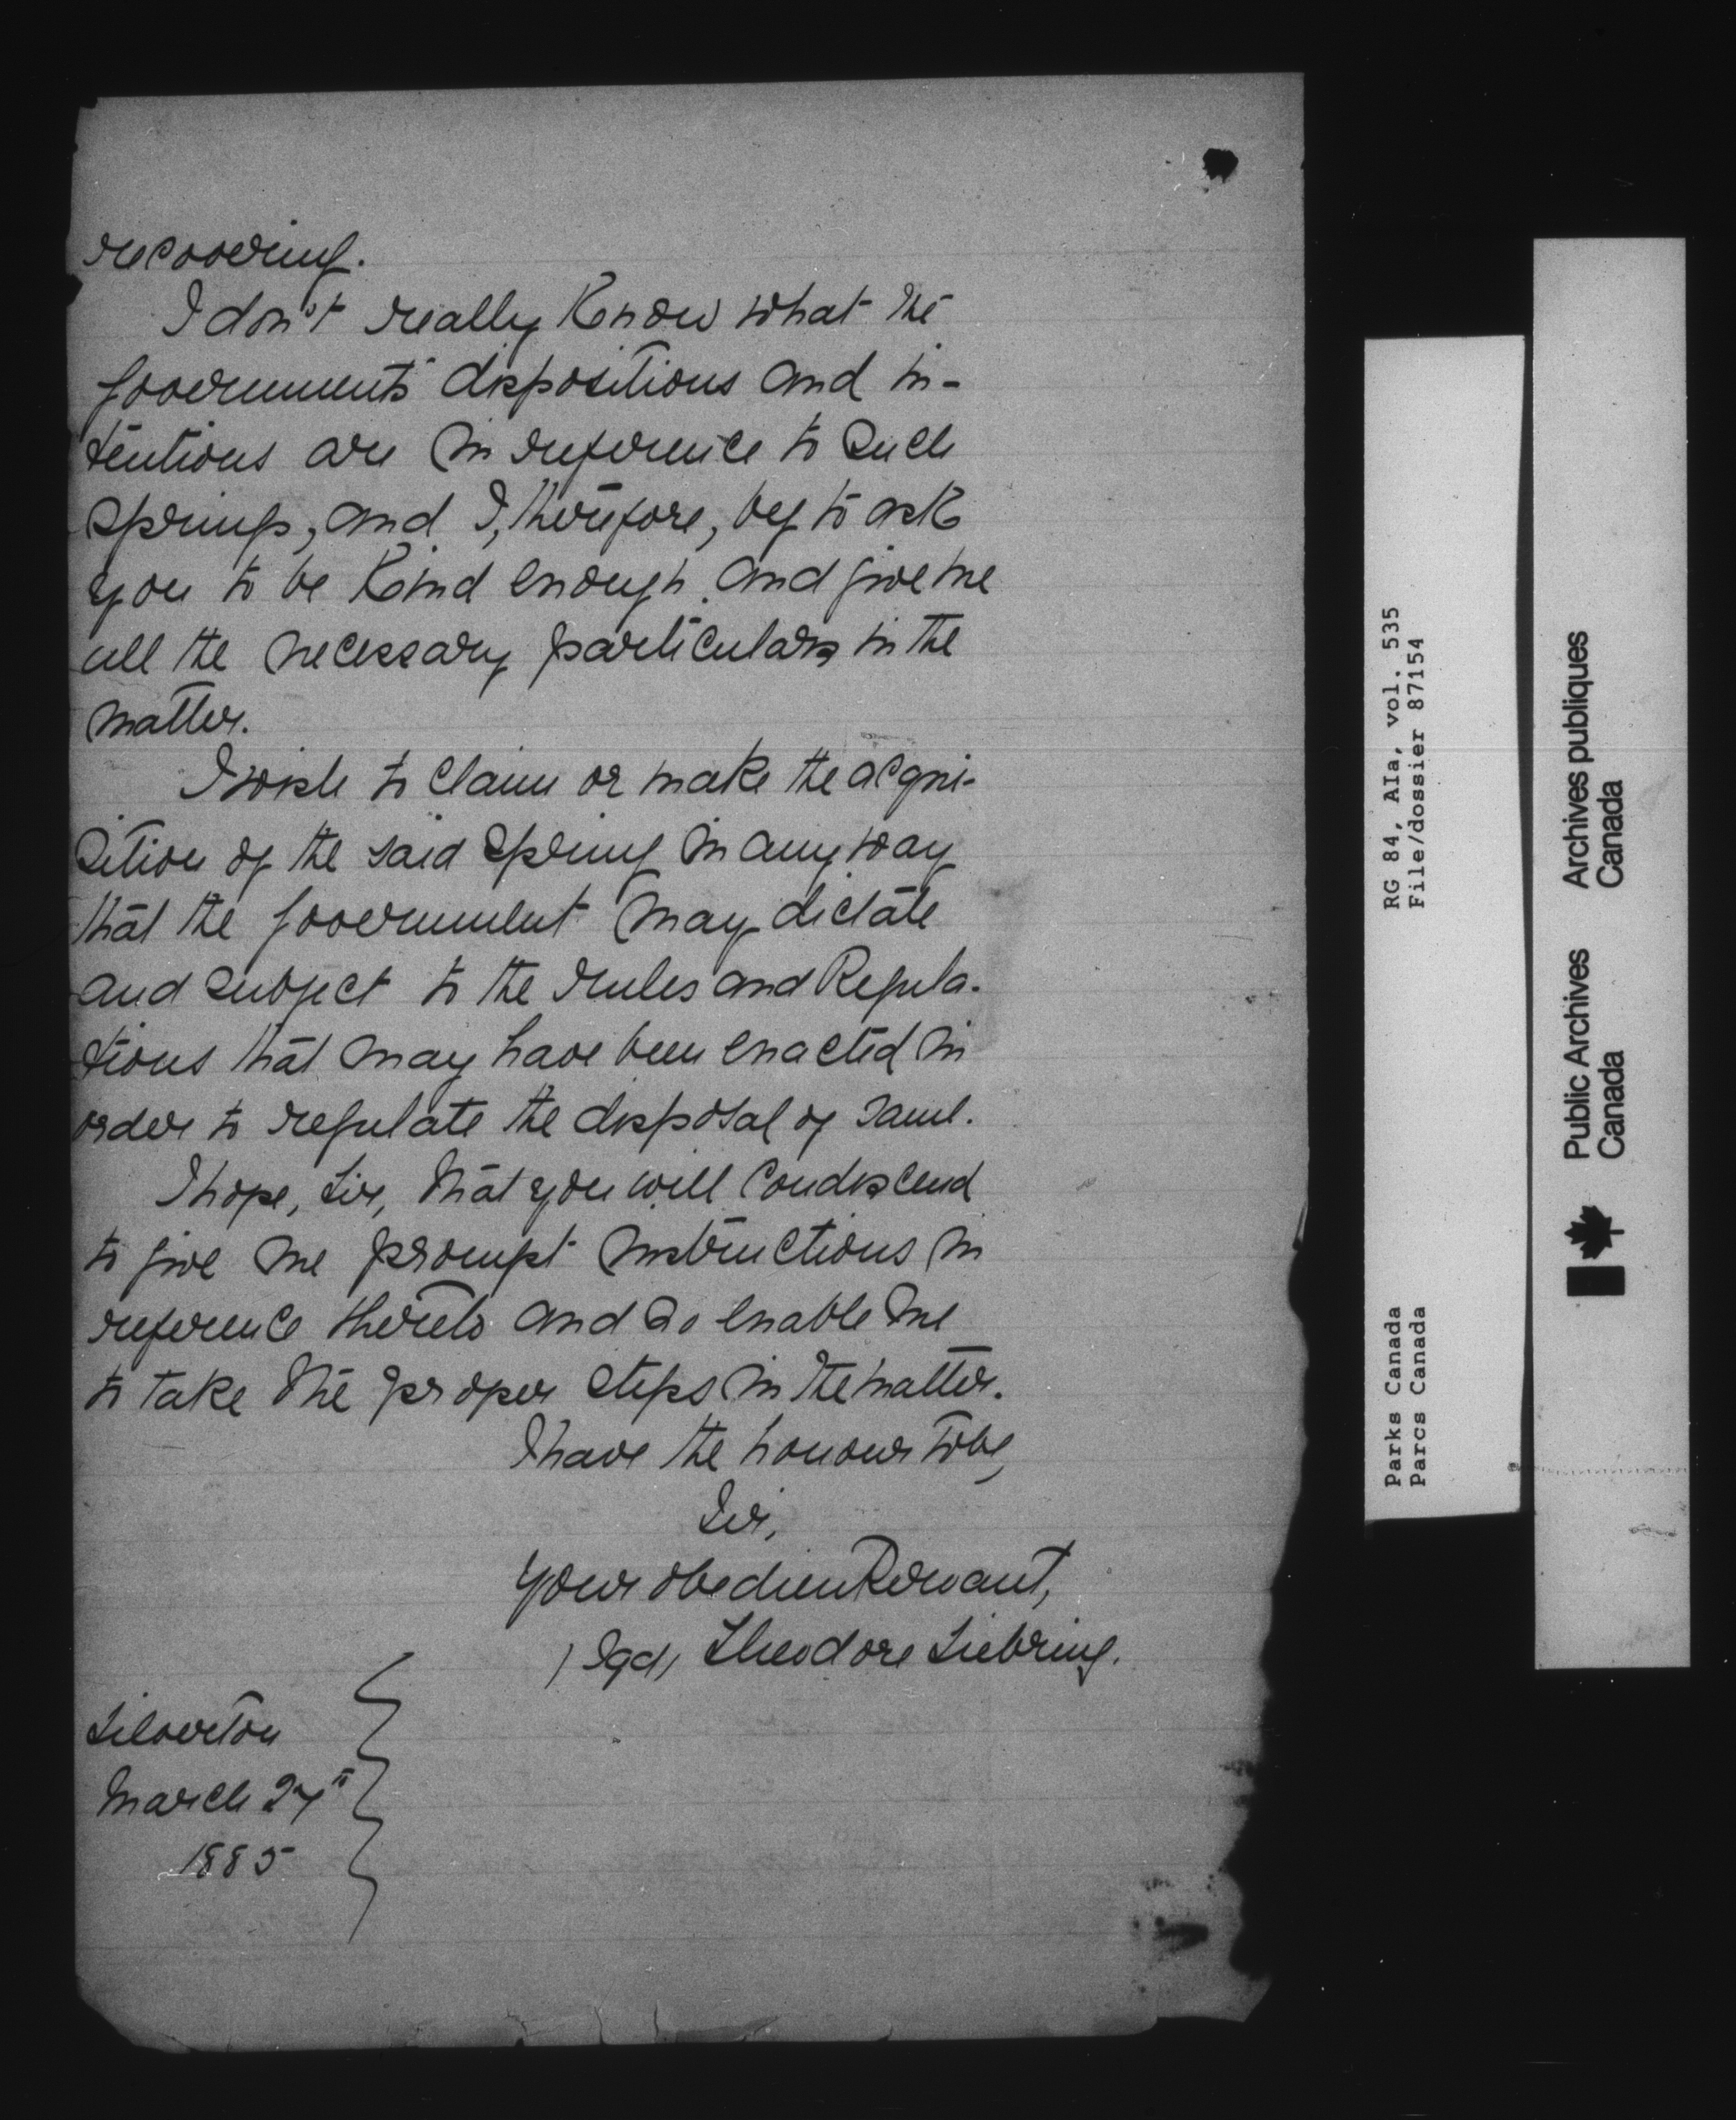 recovering.
I don't really Know what the
Governments' dispositions and in-
tentions are in reference to such
springs, and I, therefore, beg to ask
you to be Kind enough and give me
all the necessary particulars in the
matter.
I wish to claim or make the acqui-
sition of the said spring in any way
that the Government may dictate
and subject to the rules and Regula-
tions that may have been enacted in
order to regulate the disposal of same.
I hope, Sir, that you will condescend
to give me prompt instructions in
reference thereto and so enable me
to take the proper steps in the matter.
I have the honour to be,
Sir,
Your obedient servant,
(Sgd) Theodore Siebring.
Silverton
March 27th
1885
RG 84, AIa, vol. 535
File/dossier 87154
Parks Canada
Parcs Canada
Public Archives
Canada
Archives publiques
Canada